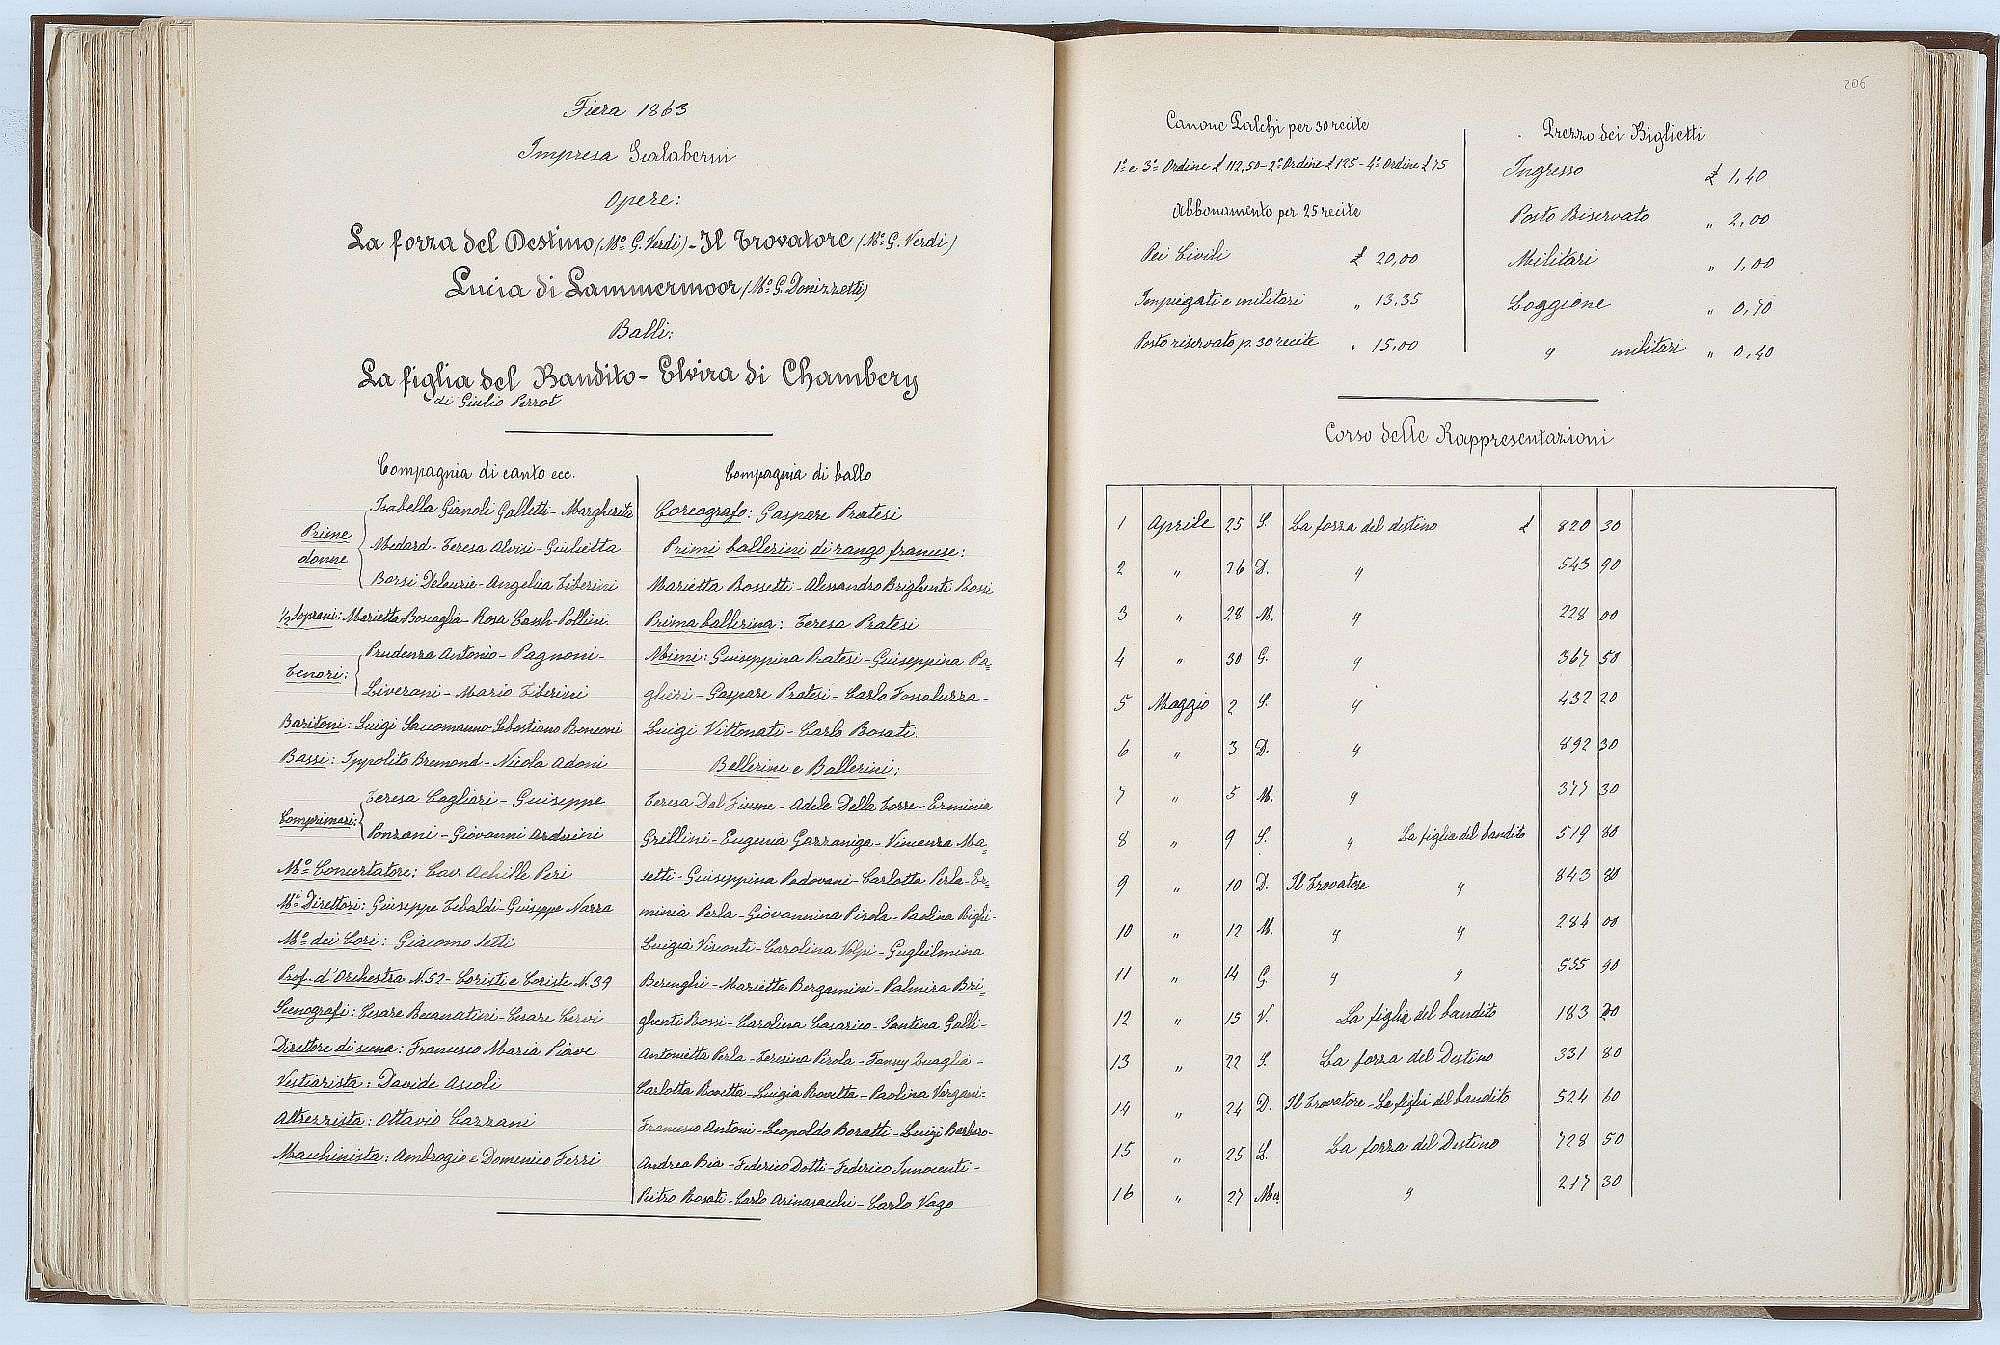 Fiera 1863
Impresa Scalaberni
Opere:
La forza del Destino (Mo. G. Verdi) - Il Trovatore (Mo. G. Verdi)
Lucia di Lammermoor (Mo. G. Donizzetti)
Balli:
La figlia del Bandito - Elvira di Chambery
di Giulio Perrot
Compagnia di canto ecc.
Prime donne
Isabella Gianoli Galletti - Margherita
Medard - Teresa Aloisi - Giulietta
Borsi Deleurie - Angelica Tiberini
½ Soprani: Marietta Boscaglia - Rosa Cash-Pollini.
Tenori:
Prudenza Antonio - Pagnoni -
Liverani - Mario Tiberini
Baritoni: Luigi Saccomanno - Sebastiano Ronconi
Bassi: Ippolito Bremond - Nicola Adoni
Comprimari:
Teresa Cagliari - Giuseppe
Ponzoni - Giovanni Arduini
Mo. Concertatore: Cav Achille Peri
Mi. Direttori: Giuseppe Tibaldi - Giuseppe Nazza
Mo. dei Cori: Giacomo Setti
Prof. d'Orchestra N. 52 - Coristi e Coriste N. 39
Scenografi: Cesare Recanatini - Cesare Cervi
Direttore di scena: Francesco Maria Piave
Vestiarista: Davide Ascoli
Attrezzista: Ottavio Cazzani
Macchinista: Ambrogio e Domenico Ferri
Compagnia di ballo
Coreografo: Gaspare Pratesi
Primi ballerini di rango francese:
Marietta Bossetti - Alessandro Brighenti Rossi
Prima ballerina: Teresa Pratesi
Mimi: Giuseppina Pratesi - Giuseppina Pa-
glieri - Gaspare Pratesi - Carlo Fossaluzza -
Luigi Vittonati - Carlo Bosati.
Bellerine e Ballerini:
Teresa Del Fiume - Adele Della Torre - Erminia
Grellini - Eugenia Gazzaniga - Vincenza Ma-
setti - Giuseppina Padovani - Carlotta Perla - Er-
minia Perla - Giovannina Pirola - Paolina Bighi -
Luigia Visconti - Carolina Volpi - Guglielmina
Berenghi - Marietta Bergamini - Palmira Bri-
ghenti Rossi - Carolina Casarico - Santina Galli -
Antonietta Perla - Teresina Pirola - Fanny Quaglia -
Carlotta Rovetta - Luigia Rovetta - Paolina Vergani -
Francesco Antoni - Leopoldo Boratti - Luigi Barbero -
Andrea Bia - Federico Dotti - Federico Innocenti -
Pietro Bosati - Carlo - Carlo Vago
206
Canone Palchi per 30 recite
1o e 3o Ordine £ 112,50 - 2o Ordine £ 125 - 4o Ordine £ 75
Abbonamento per 25 recite
Pei Civili £ 20,00
Impiegati e militari " 13,35
Posto riservato p. 30 recite " 15,00
Prezzo dei Biglietti
Ingresso £ 1,40
Posto Riservato " 2,00
Militari " 1,00
Loggione " 0,70
" militari " 0,40
Corso delle Rappresentazioni
1 Aprile 25 S. La forza del destino £ 820 30
2 " 26 D. " 543 90
3 " 28 M. " 228 00
4 " 30 G. " 367 50
5 Maggio 2 S. " 432 20
6 " 3 D. " 892 30
7 " 5 M. " 377 30
8 " 9 S. " La figlia del bandito 519 80
9 " 10 D. Il Trovatore " 843 80
10 " 12 M. " " 284 00
11 " 14 G. " " 555 90
12 " 15 V. La figlia del bandito 183 20
13 " 22 S. La forza del Destino 331 80
14 " 24 D. Il Trovatore - La figlia del bandito 524 60
15 " 25 L. La forza del Destino 728 50
16 " 27 Mer. " 217 30